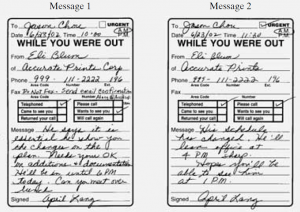 Message 1
To Jason Chou
URGENT
Date 6/23/02 Time 10:00 AM PM
WHILE YOU WERE OUT
From Eli Blum
of Accurate Prints Corp
Phone 999 - 111-2222 196
Area Code Number Ext.
Fax Do Not Fax - Send email confirmation
Area Code Number
Telephoned Please call
Came to see you Wants to see you
Returned your call Will call again
Message He says it is
essential he show you
the changes on the
plan. Needs your OK
on additions & documentation
He'll be in until 6 PM
today. Can you meet over
Signed April Kang
Message 2
To Jason Chou
URGENT
Date 6/23/02 Time 11:30 AM PM
WHILE YOU WERE OUT
From Eli Blum
of Accurate Prints
Phone 999 - 111-2222 196
Area Code Number Ext.
Fax
Area Code Number
Telephoned Please call
Came to see you Wants to see you
Returned your call Will call again
Message His schedule
has changed. He'll
leave office at
4 PM sharp.
Hopes you'll be
able to see him
at 1 PM.
Signed April Kang